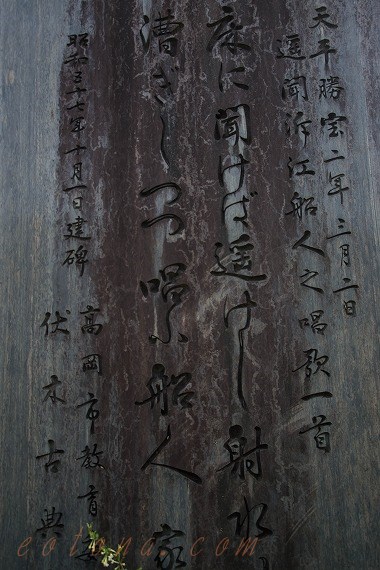 天平勝宝二年三月二日
遥聞泝江船人之唱歌一首
床に聞けば遥けし射水
漕ぎしつつ唱ふ船人 家
昭和三十七年十月一日建碑
高岡市教育委
伏木古典
eotona.com